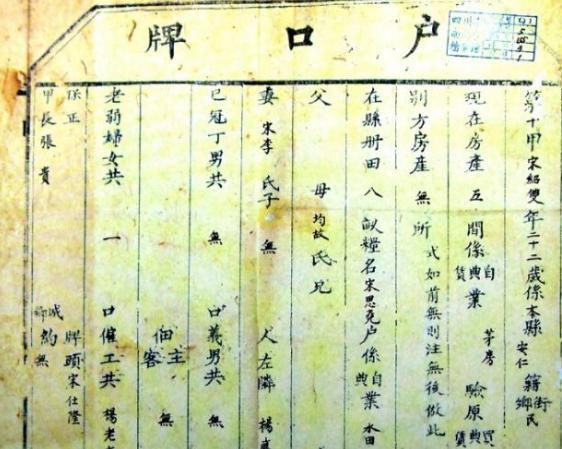 户口牌
四川
第十甲宋紹雙年二十二歲係本縣安仁籍街鄉民
現在房產五間係自典賃業茅房驗原買典賃
別方房產無所式如前無則注無後倣此
在縣册田八畝糧名宋思户係自典業水田
父母均故氏兄
妻宋李氏子無人左隣楊
已冠丁男共無口義男共無
主佃客無
老弱婦女共一口僱工共楊老
保正牌頭宋仕隆
甲長張貴城鄉約無